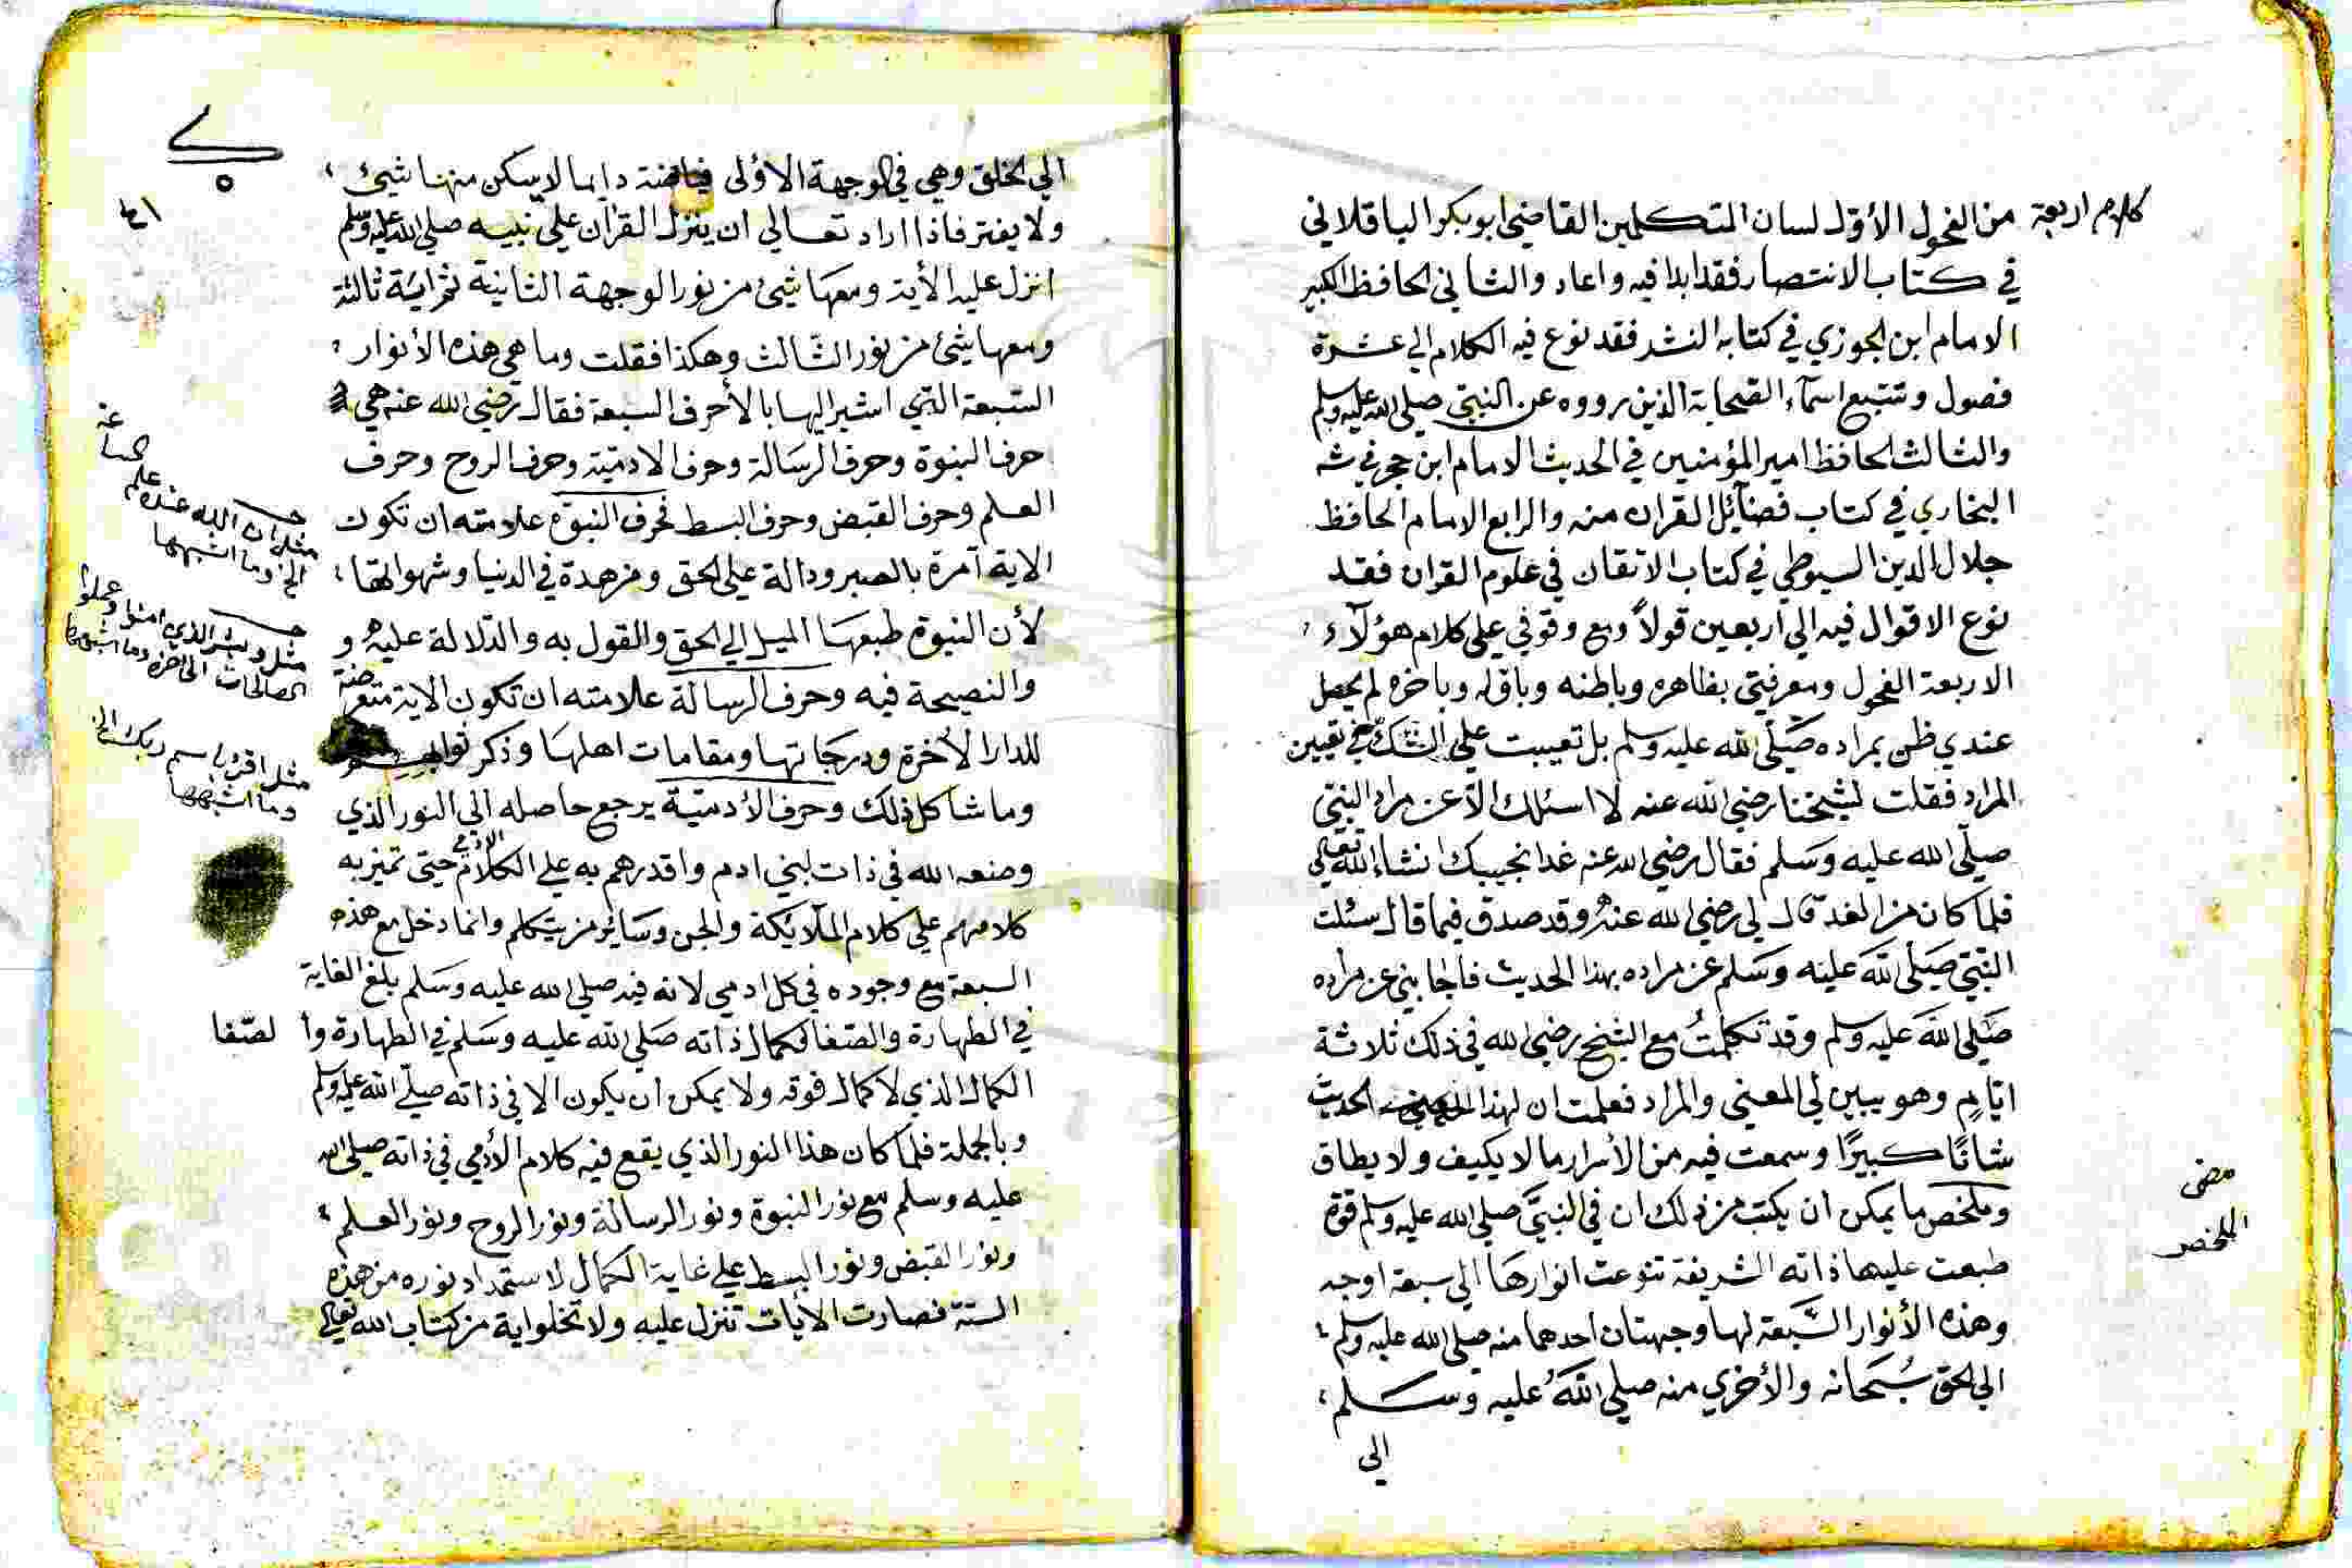 كلام اربعة من الفحول الأول لسان المتكلمين القاضي ابو بكر الباقلاني
في كتاب الانتصار فقد ابدا فيه واعاد والثاني الحافظ الكبير
الامام ابن الجوزي في كتابه النشر فقد نوع فيه الكلام الي عشرة
فصول وتتبع اسمآء الصحابة الذين رووه عن النبيّ صلي الله عليه وسلم
والثالث الحافظ امير المؤمنين في الحديث الامام ابن حجر في شه
البخاري في كتاب فضآئل القران منه والرابع الامام الحافظ
جلال الدين السيوطي في كتاب الاتقان في علوم القران فقد
نوع الاقوال فيه الي أربعين قولاً ومع وقوفي علي كلام هؤلآء
الاربعة الفحول ومعرفتي بظاهره وباطنه وباوله وباخره لم يحصل
عندي ظن بمراده صَلّي الله عليه وسلم بل تعيبت علي الشك في تعيين
المراد فقلت لشيخنا رضي الله عنه لا اسئلك الاّ عن مراد النبيّ
صلّي الله عليه وَسَلم فقال رضي الله عنه غدا نجيبك انشاء الله تعالي
فلما كان من الغد قال لي رضي الله عنهُ وقد صدق فيما قال سئلت
النّبيّ صَلي اللهَ علينه وسَلم عن مراده بهذا الحديث فأجابني عن مراده
صَلي اللهَ عليه وسلم وقد تكلمتُ مع الشيخ رضي الله في ذلك ثلاثة
ايّامٍ وهو يبين لي المعني والمراد فعلمت ان لهذا الحديث
شانًا كبيرًا وسمعت فيه من الأسرار ما لا يكيف ولا يطاق
وملخص ما يمكن ان يكتب من ذلك ان في النبيَّ صلي الله عليه وسلم قوة
طبعت عليها ذاته الشريفة تنوعت انوارهَا الي سبعة اوجه
وهذه الأنوار السَّبعة لها وجهتان احدهما منه صلي الله عليه وسلم
الي الحق سُبحَانه والأخري منه صلي اللهَ عليه وسَلم
الي
مضى
الملخص
٤١
الي الخلق وهي في الوجهة الاؤلى فياضة دايما لا يسكن منها شيئ
ولا يفتر فاذا اراد تعالي ان ينزل القرآن علي نبيه صلي الله عليه وسلم
انزل عليه الأية ومعهَا شيئ من نور الوجهة الثانية ثم اية ثالثة
ومعها شيئ من نور الثّالث وهكذا فقلت وما هي هذه الأنوار
السّبعة التي اشير اليها بالأحرف السبعة فقال رضي الله عنه هي
حرف النبوة وحرف الرسَالة وحرف الادميّة وحرف الروح وحرف
العلم وحرف القبض وحرف البسط فحرف النبوّة علامته ان تكون
الاية آمرة بالصبر ودالة علي الحق ومزهدة في الدنيا وشهواتها
لأن النبوة طبعهَا الميل الي الحق والقول به والدّلالة عليهُ و
والنصيحة فيه وحرف الرسالة علامته ان تكون الاية متعرضة
للدار الأخرة ودرجاتها ومقامات اهلهَا وذكر ثوابهم
وما شاكل ذلك وحرف الأدميّة يرجع حاصله الي النور الذي
وضعه الله في ذات لبني ادم واقدرهم به علي الكلام الادمي حيتي تميز به
كلامهم علي كلام الملآئكة والجن وسَائر من يتكلم وانما دخل مع هذه
السبعة مع وجوده في كل ادمي لانه فيه صلي الله عليه وسَلم بلغ الغاية
في الطهارة والصّفا لكمال ذاته صَلي الله عليه وسَلم في الطهارة وا لصّفا
الكمال الذي لا كمال فوقه ولا يمكن ان يكون الا في ذاته صلّي الله عليه وسلم
وبالجملة فلما كان هذا النور الذي يقع فيه كلام الأدمي في ذاته صلي الله
عليه وسلم مع نور النبوة ونور الرسالة ونور الروح ونور العلم
ونور القبض ونور البسط علي غاية الكمال لاستمداد نوره من هذه
الستة فصارت الأيات تنزل عليه ولا تخلوا ية من كتاب الله تعالي
مثل ان الله عنده علم الساعة
الخ وما اشبهها
مثل وبشر الذي امنوا وعملوا
الصالحات الي اخره وما اشبهها
مثل اقرا باسم ربك الي
وما اشبهها